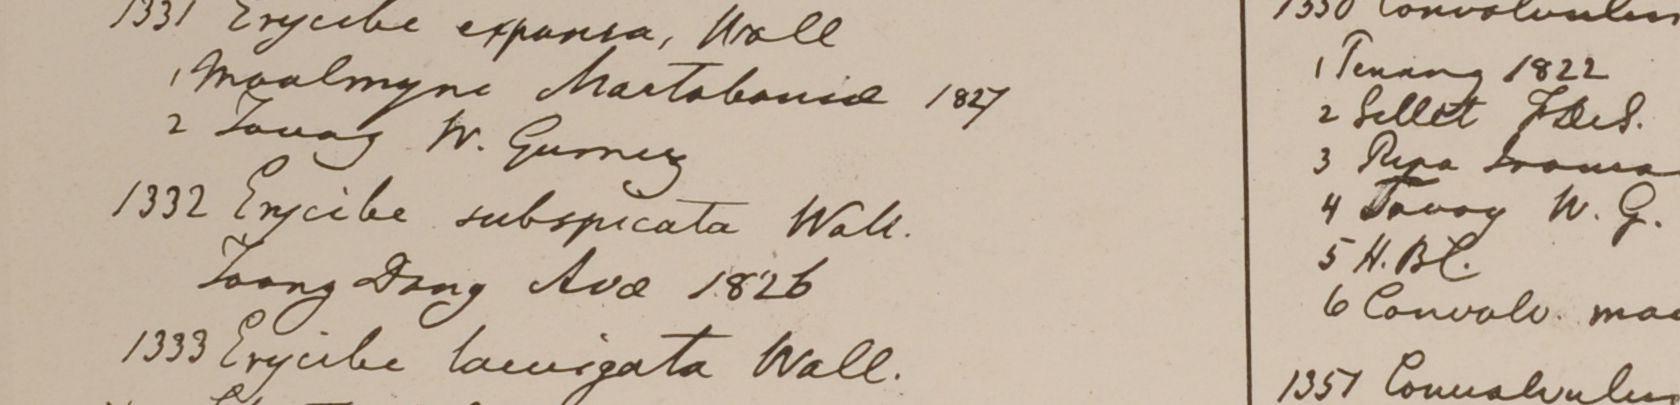 1331 Erycibe expansa, Wall
1 Moalmyne Martabaniæ 1827
2 Tavoy W. Gomez
1332 Erycibe subspicata Wall.
Toong Dong Avæ 1826
1333 Erycibe laevigata Wall.
1350 Convolvulus
1 Penang 1822
2 Sillet F.De S.
3 Ripa
4 Tavoy W. G.
5 H.B.C.
6 Convolv.
1351 Convolvulus